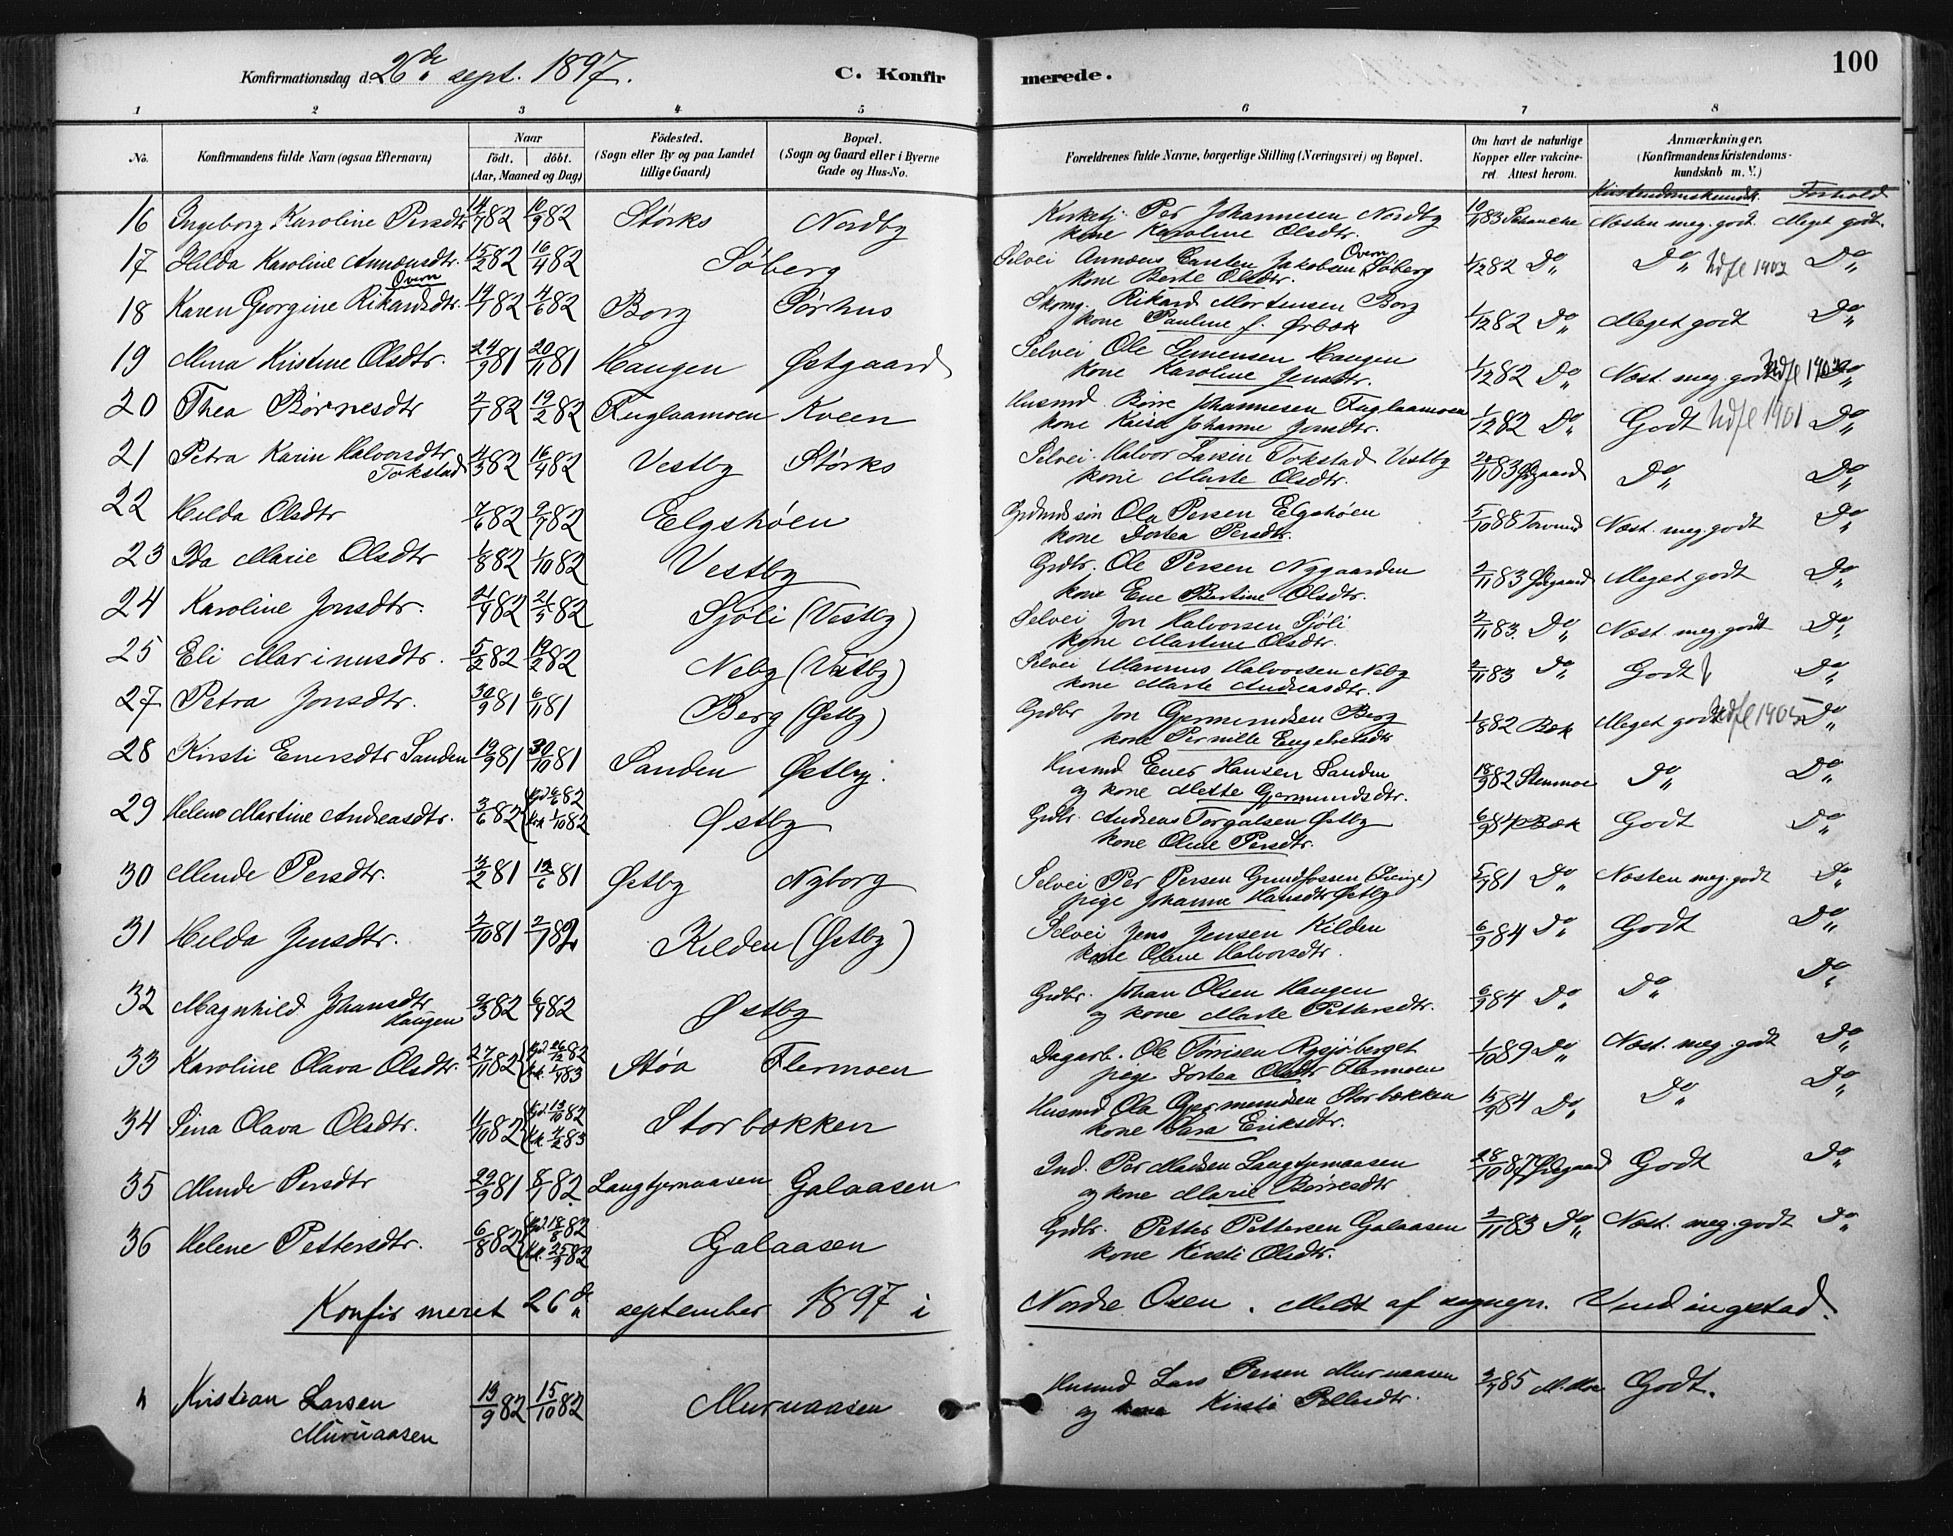 Konfirmationsdag d. 26de sept. 1897.
C. Konfirmerede.
100
1 2 3 4 5 6 7 8
No. Konfirmandens fulde Navn (ogsaa Efternavn) Naar født. døbt. (Aar, Maaned og Dag) Fødested. (Sogn eller By og paa Landet tillige Gaard) Bopæl. (Sogn og Gaard eller i Byerne Gade og Hus-No. Forældrenes fulde Navne, borgerlige Stilling (Næringsvei) og Bopæl. Om havt de naturlige Kopper eller vakcineret. Attest herom. Anmærkninger. (Konfirmandens Kristendomskundskab m. V.)
Kristendomskundsk. Forhold
16 Ingeborg Karoline Persdtr 14/7 82 10/9 82 Størks Nordby Kirketj. Per Johannesen Nordby 10/11 83 Næsten meg. godt. Meget godt.
kone Karoline Olsdtr.
17 Hilda Karoline Annæusdtr. Overn 15/2 82 16/4 82 Søberg Selvei Annæus Carsten Jakobsen Overn Søberg 1/12 82 Do Do Udfl 1902 Do
kone Berte Olsdtr.
18 Karen Georgine Rikardsdtr. 14/1 82 4/6 82 Borg Sørhus Skomg. Rikard Mortensen Borg 1/12 82 Do Meget godt Do
kone Pauline f. Ørbæk
19 Mina Kristine Olsdtr. 24/9 81 20/11 81 Haugen Østgaard Selvei Ole Simensen Haugen 1/12 82 Do Næst. meg. godt Do
kone Karoline Jensdtr.
20 Thea Børresdtr 2/1 82 19/2 82 Fuglaamoen Kveen Husmd Børre Johannesen Fuglaamoen 1/12 82 Do Godt Udfl 1901 Do
kone Kaisa Johanne Jonsdtr.
21 Petra Karin Halvorsdtr. Tokstad 4/3 82 16/4 82 Vestby Størks Selvei Halvor Larsen Tokstad Vestby 20/11 83 Øgaard Do Do
kone Marte Olsdtr.
22 Hilda Olsdtr 7/6 82 9/7 82 Elgshøen Grdmds søn Ola Persen Elgshøen 5/10 88 Næst. meg. godt Do
kone Dortea Persdtr.
23 Ida Marie Olsdtr 1/8 82 1/10 82 Vestby Grdbr. Ole Persen Nygaarden 2/11 83 Ødegaard Meget godt Do
kone Ene Bertine Olsdtr.
24 Karoline Jonsdtr. 21/4 82 21/5 82 Sjöli (Vestby) Selvei Jon Halvorsen Sjöli 2/11 83. Do Næst. meg. godt Do
kone Martine Olsdtr.
25 Eli Marinusdtr. 5/2 82 19/2 82 Neby (Vestby) Selvei Marinus Halvorsen Neby 2/11 83 Do Godt Do
kone Marte Andreasdtr.
27 Petra Jonsdtr. 30/9 81 6/11 81 Berg (Østby) Grdbr Jon Germundsen Berg 1/8 82 Bæk Meget godt Udfl 1905 Do
kone Pernille Engebretsdtr
28 Kirsti Enersdtr Sanden 19/9 81 30/10 81 Sanden Østby. Husmd Ener Hansen Sanden 18/9 82 Stenmoe Do Do
og kone Mette Germundsdtr.
29 Helene Martine Andreasdtr. 3/6 82 Østby Grdbr. Andreas Torgalsen Østby 6/9 84 Bæk Godt Do
kone Oline Persdtr.
30 Mende Persdtr. 3/2 81 12/6 81 Østby Nyborg Selvei Per Persen Grundfossen 5/9 81 Do Næsten meg. godt Do
pige Johanne Hansdtr Østby
31 Hilda Jensdtr. 2/10 81 2/7 82 Kilden (Østby) Selvei Jens Jensen Kilden 6/9 84 Do Godt Do
kone Oline Halvorsdtr.
32 Magnhild Johansdtr Haugen 2/3 82 6/4 82 Østby Grdbr. Johan Olsen Haugen 6/9 84 Do Do Do
og kone Marte Pettersdtr.
33 Karoline Olava Olsdtr. 27/11 82 Hjd 26/12 82 Kk. 1/4 83 Støa Flermoen Dagarb. Ole Tørrisen Rysjöberget 1/10 89 Do Næst. meg. godt Do
pige Dortea Olsdtr Flermoen
34 Sina Olava Olsdtr. 4/10 82 Hjd 13/10 82 Kk. 4/2 83 Storbækken Husmd Ola Germundsen Storbækken 15/9 84 Do Do Do
kone Sara Eriksdtr.
35 Mende Persdtr 29/9 81 8/1 82 Langtjernaasen Galaasen Ind. Per Madsen Langtjernaasen 28/10 87 Ødegaard Godt Do
og kone Marie Børresdtr
36 Helene Pettersdtr. 6/8 82 Hjd. 18/8 82 Kk. 25/9 82 Galaasen Grdbr. Petter Pettersen Galaasen 2/11 83 Do Næst. meg. godt Do
kone Kirsti Olsdtr.
Konfirmeret 26de september 1897 i Nordre Osen. Meldt af sognepr. Vendingstad.
" Kristian Larsen Murnaasen 13/9 82 15/10 82 Murnaasen Husmd Lars Persen Murnaasen 3/9 85 Godt.
og kone Kirsti